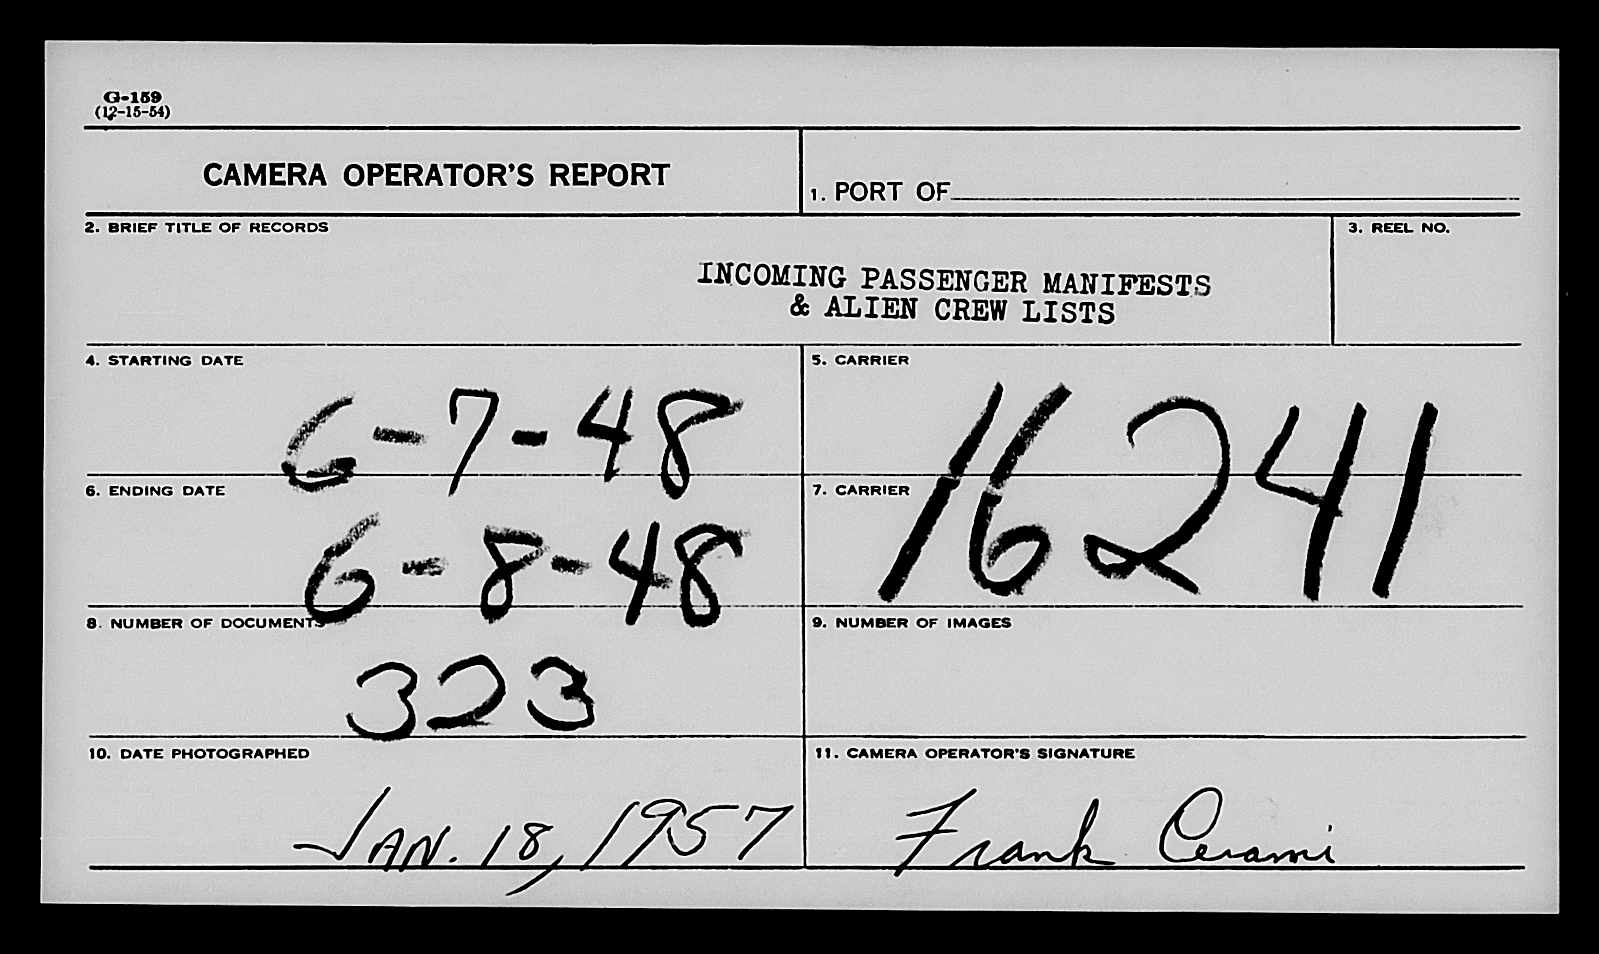 G-159
(12-15-54)
CAMERA OPERATOR'S REPORT
1. PORT OF
2. BRIEF TITLE OF RECORDS
3. REEL NO.
INCOMING PASSENGER MANIFESTS
& ALIEN CREW LISTS
4. STARTING DATE
6-7-48
5. CARRIER
16241
6. ENDING DATE
6-8-48
7. CARRIER
8. NUMBER OF DOCUMENTS
323
9. NUMBER OF IMAGES
10. DATE PHOTOGRAPHED
JAN. 18, 1957
11. CAMERA OPERATOR'S SIGNATURE
Frank Cerami